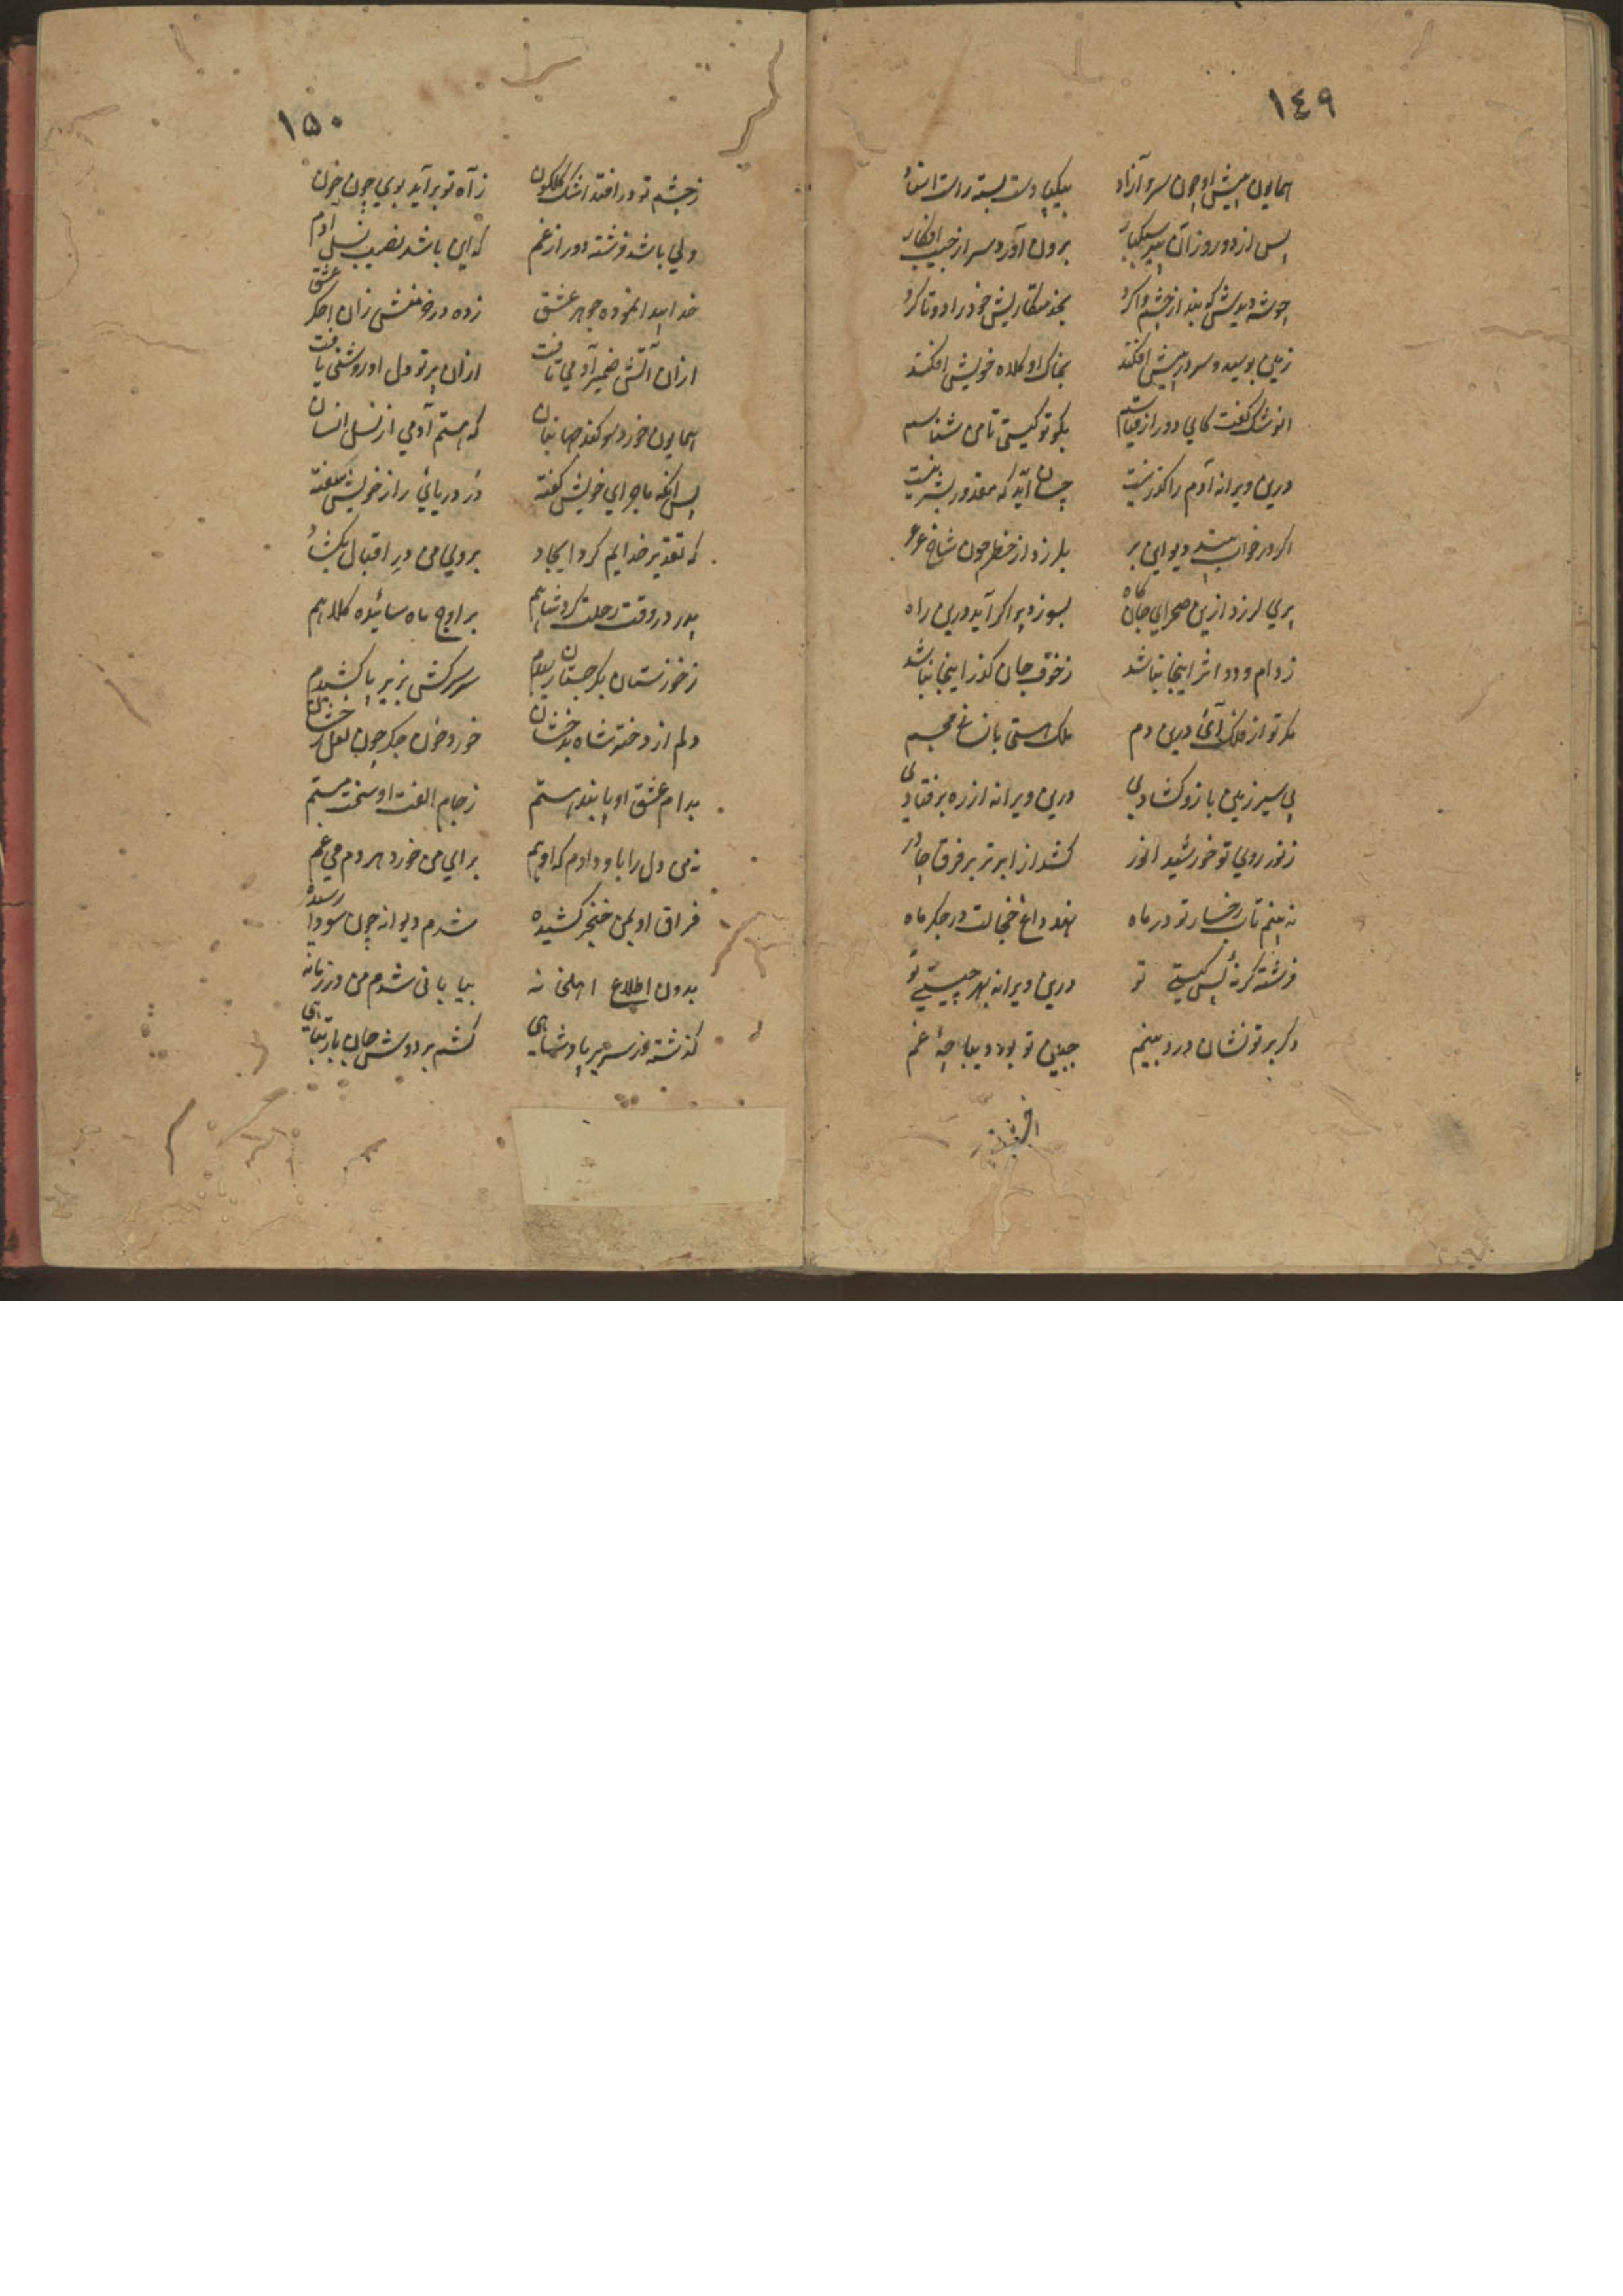 ١٤٩
همایون پیش او چون سرو آزاد بیکپا دست بسته راست استاد
پس از دو روز آن پیر سبکبار برون آورد سر از جیب افکار
چو شه دیدش که بند از چشم وا کرد بخدمتکاریش خود را دو تا کرد
زمین بوسید و سر در پیش افکند بخاک او کلاه خویش افکند
انوشک گفت کای دور از قیاسم بگو تو کیستی تا من شناسم
درین ویرانه آدم را گذر نیست چسان آید که مقدور بشر نیست
اگر در خواب بیند دیو این بر بلرزد از خطر چون شاخ عرعر
پری لرزد ازین صحرای جانکاه بسوزد پر اگر آید درین راه
ز دام و دد اثر اینجا نباشد ز خوف جان گذر اینجا نباشد
مگر تو از فلک آئی درین دم ملک هستی بانسانی مجسم
پی سیر زمین بازو گشادی درین ویرانه از ره بر فتادی
ز نور روی تو خورشید انور کشد از ابر تر بر فرق چادر
نه بینم تاب رخسار تو در ماه نهد داغ خجالت در جگر ماه
فرشته گر نهٔ پس کیستی تو درین ویرانه بهر چیستی تو
دگر بر تو نشان درد بینم جبین تو بود دیباچهٔ غم
١۵٠
ز چشم تو در افتد اشک گلگون ز آه تو بر آید بوی چون خون
ولی باشد فرشته دور از غم که این باشد نصیب نسل آدم
خدا پیدا نموده جوهر عشق زده در خرمنش زان اخگر عشق
ازان آتش ضمیر آدمی تافت ازان پرتو دل او روشنی یافت
همایون خورد سوگند جهانبان که هستم آدمی از نسل انسان
پس آنگه ماجرای خویش گفته در دریائی راز خویش سفته
که تقدیر خدایم کرد ایجاد بروی من در اقبال بگشاد
پدر در وقت رحلت کرد شاهم بر اوج ماه سائیده کلاهم
ز خوزستان بگرجستان رسیدم سر سرکش بزیر پا کشیدم
دلم از دخت شاه بدخشان خورد خون جگر چون لعل رخشان
بدام عشق او پابند هستم ز جام الفت او سخت مستم
نه من دل را باو دادم که او هم برای من خورد هر دم می غم
فراق او بمن خنجر کشیده شدم دیوانه چون سودا رسیده
بدون اطلاع اهل خانه بیابانی شدم من در زمانه
گذشته از سریر پادشاهی کشم بر دوش جان بار تباهی